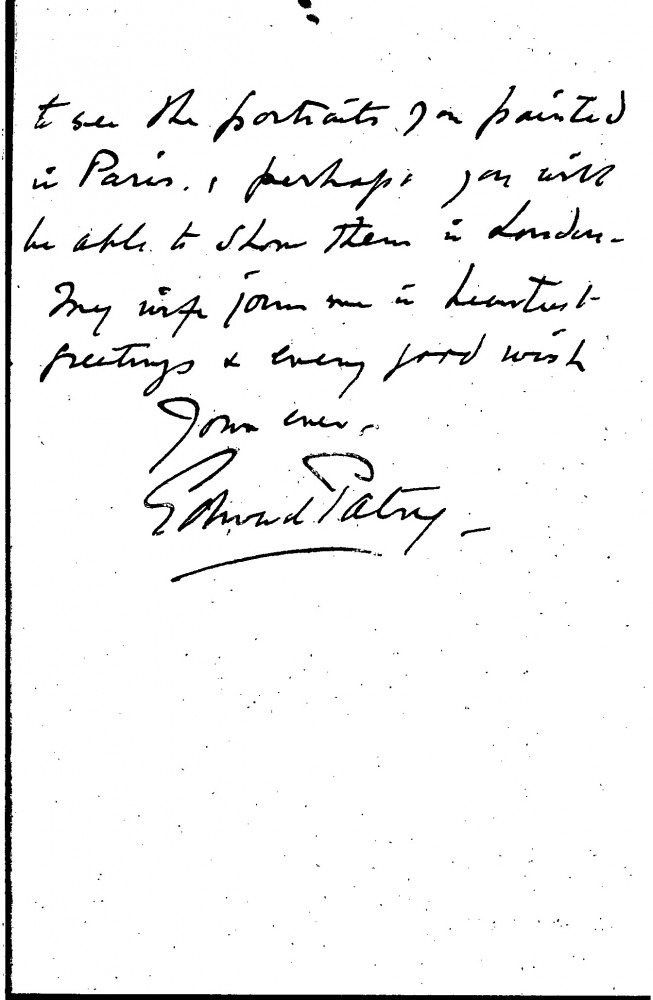 to see the portraits you painted
in Paris. , perhaps you will
be able to show them in London -
My wife joins me in heartiest
greetings & every good wish
Yours ever,
Edward Patry -